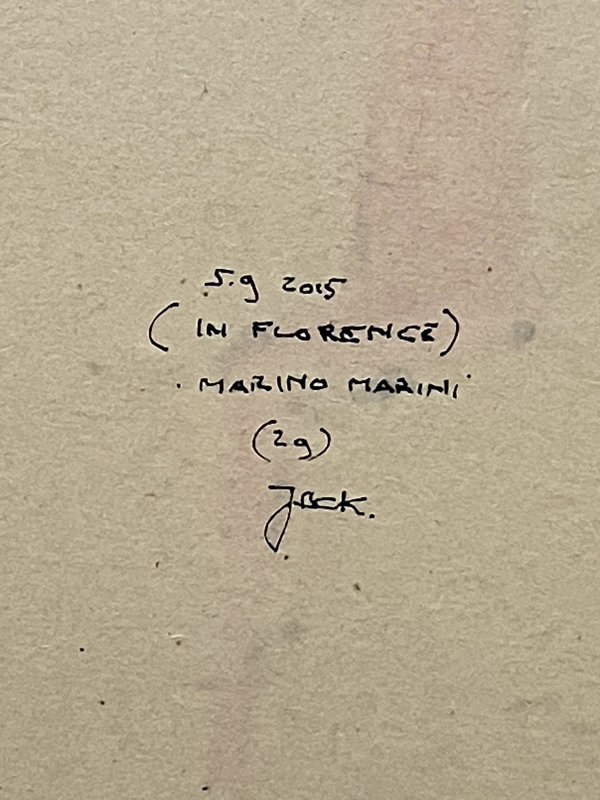 5.9 2015
(IN FLORENCE)
. MARINO MARINI
(29)
Jack.